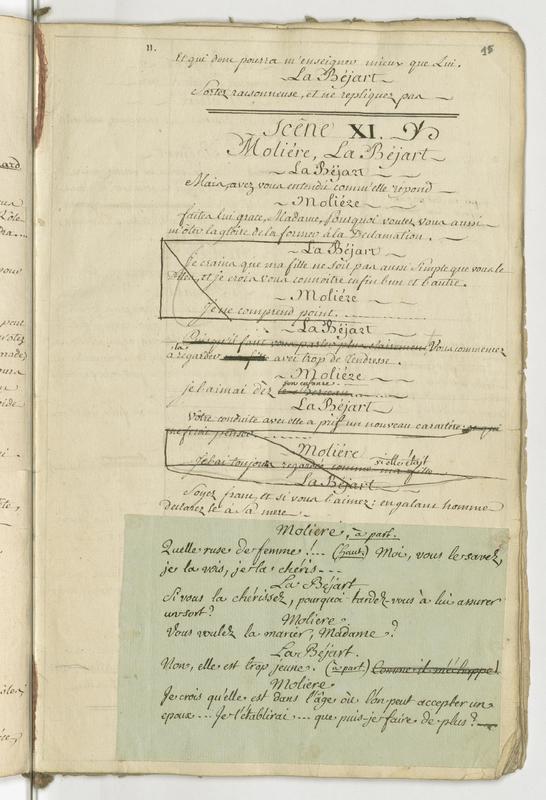 11.
15
Et qui donc pourra m'enseigner mieux que Lui.
La Béjart
Sortez raisonneuse, et ne repliquez pas
Scêne XI.
Moliére, La Béjart
La Béjart
Mais, avez vous entendu comm'elle répond
Moliéze
faites lui grace, Madame, pourquoi voulez vous aussi
m'oter la gloire de la former à la Declamation.
La Béjart
Je crains que ma fille ne soit pas aussi simple que vous le
dites, et je crois vous connoitre enfin l'un et l'autre.
Moliéze
Je ne comprend point.
La Béjart
Puisqu'il faut vous parler plus clairement Vous commencez
la
à regarder ma fille avec trop de tendresse.
Moliéze
son enfance
je l'aimai dez le Berceau
La Béjart
Votre conduite avec elle a pris un nouveau caractére: ce qui
me fait penser
Moliére
si elle était
Je l'ai toujours regardée comme ma fille
La Béjart
Soyez franc, et si vous l'aimez: en galant homme
declarez le à sa mere
Moliere, à part.
Quelle ruse de femme!... (haut.) Moi, vous le savez,
je la vois, je la cheris---
La Béjart
Si vous la cherissez, pourquoi tardez-vous à lui assurer
un sort?
Moliere.
Vous voulez la marier, Madame?
La Béjart.
Non, elle est trop jeune. (à part) Comme il m'échappe!
Moliere
Je crois qu'elle est dans l'âge où l'on peut accepter un
epoux... Je l'établirai... que puis-je faire de plus?